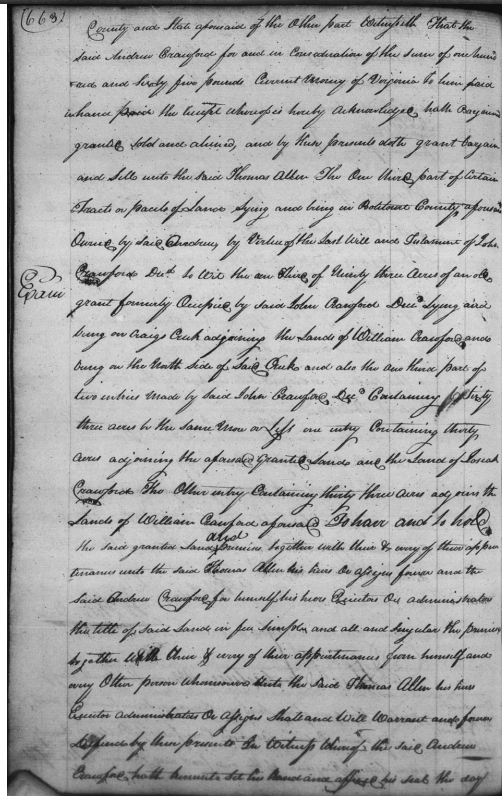 (663)
County and State aforesaid of the Other part Witnesseth That the
said Andrew Crawford for and in Consideration of the sum of one hund
red and Sixty five pounds Current Money of Virginia to him paid
in hand paid the receipt whereof is hereby Acknowledge hath bargained
granted Sold and aliened, and by these presents doth grant bargain
and Sell unto the said Thomas Allen The One third part of Certain
Tracts or parcels of Land Lying and being in Botetourt County aforesaid
Owned by Said Andrew by Virtue of the Last Will and Testament of John
Crawford Decd. to Wit the one third of Ninety three Acres of an old
Exam
grant formerly Occupied by said John Crawford Decd. Lying and
being on Craigs Creek adjoining the Lands of William Crawford and
being on the North Side of Said Creek and also the one third part of
two entries made by Said John Crawford Decd. Containing Sixty
three acres be the same More or Less one entry Containing thirty
Acres adjoining the aforesaid Granted Lands and the Land of Josiah
Crawford The Other entry Containing thirty three Acres adjoins the
Lands of William Crawford aforesaid To have and to hold
the said granted Land and premises together with their & every of their appur
tenances unto the said Thomas Allen his heirs Or assigns forever and the
said Andrew Crawford for himself his heirs Executors Or administrators
the title of said Lands in fee simple and all and singular the premises
together With their & every of their appurtenances from himself and
every Other person whomsoever unto the said Thomas Allen his heirs
Executor administrators Or assigns Shall and Will Warrant and forever
Defend by these presents In Witness Whereof the said Andrew
Crawford hath hereunto Set his hand and affixed his seal the day